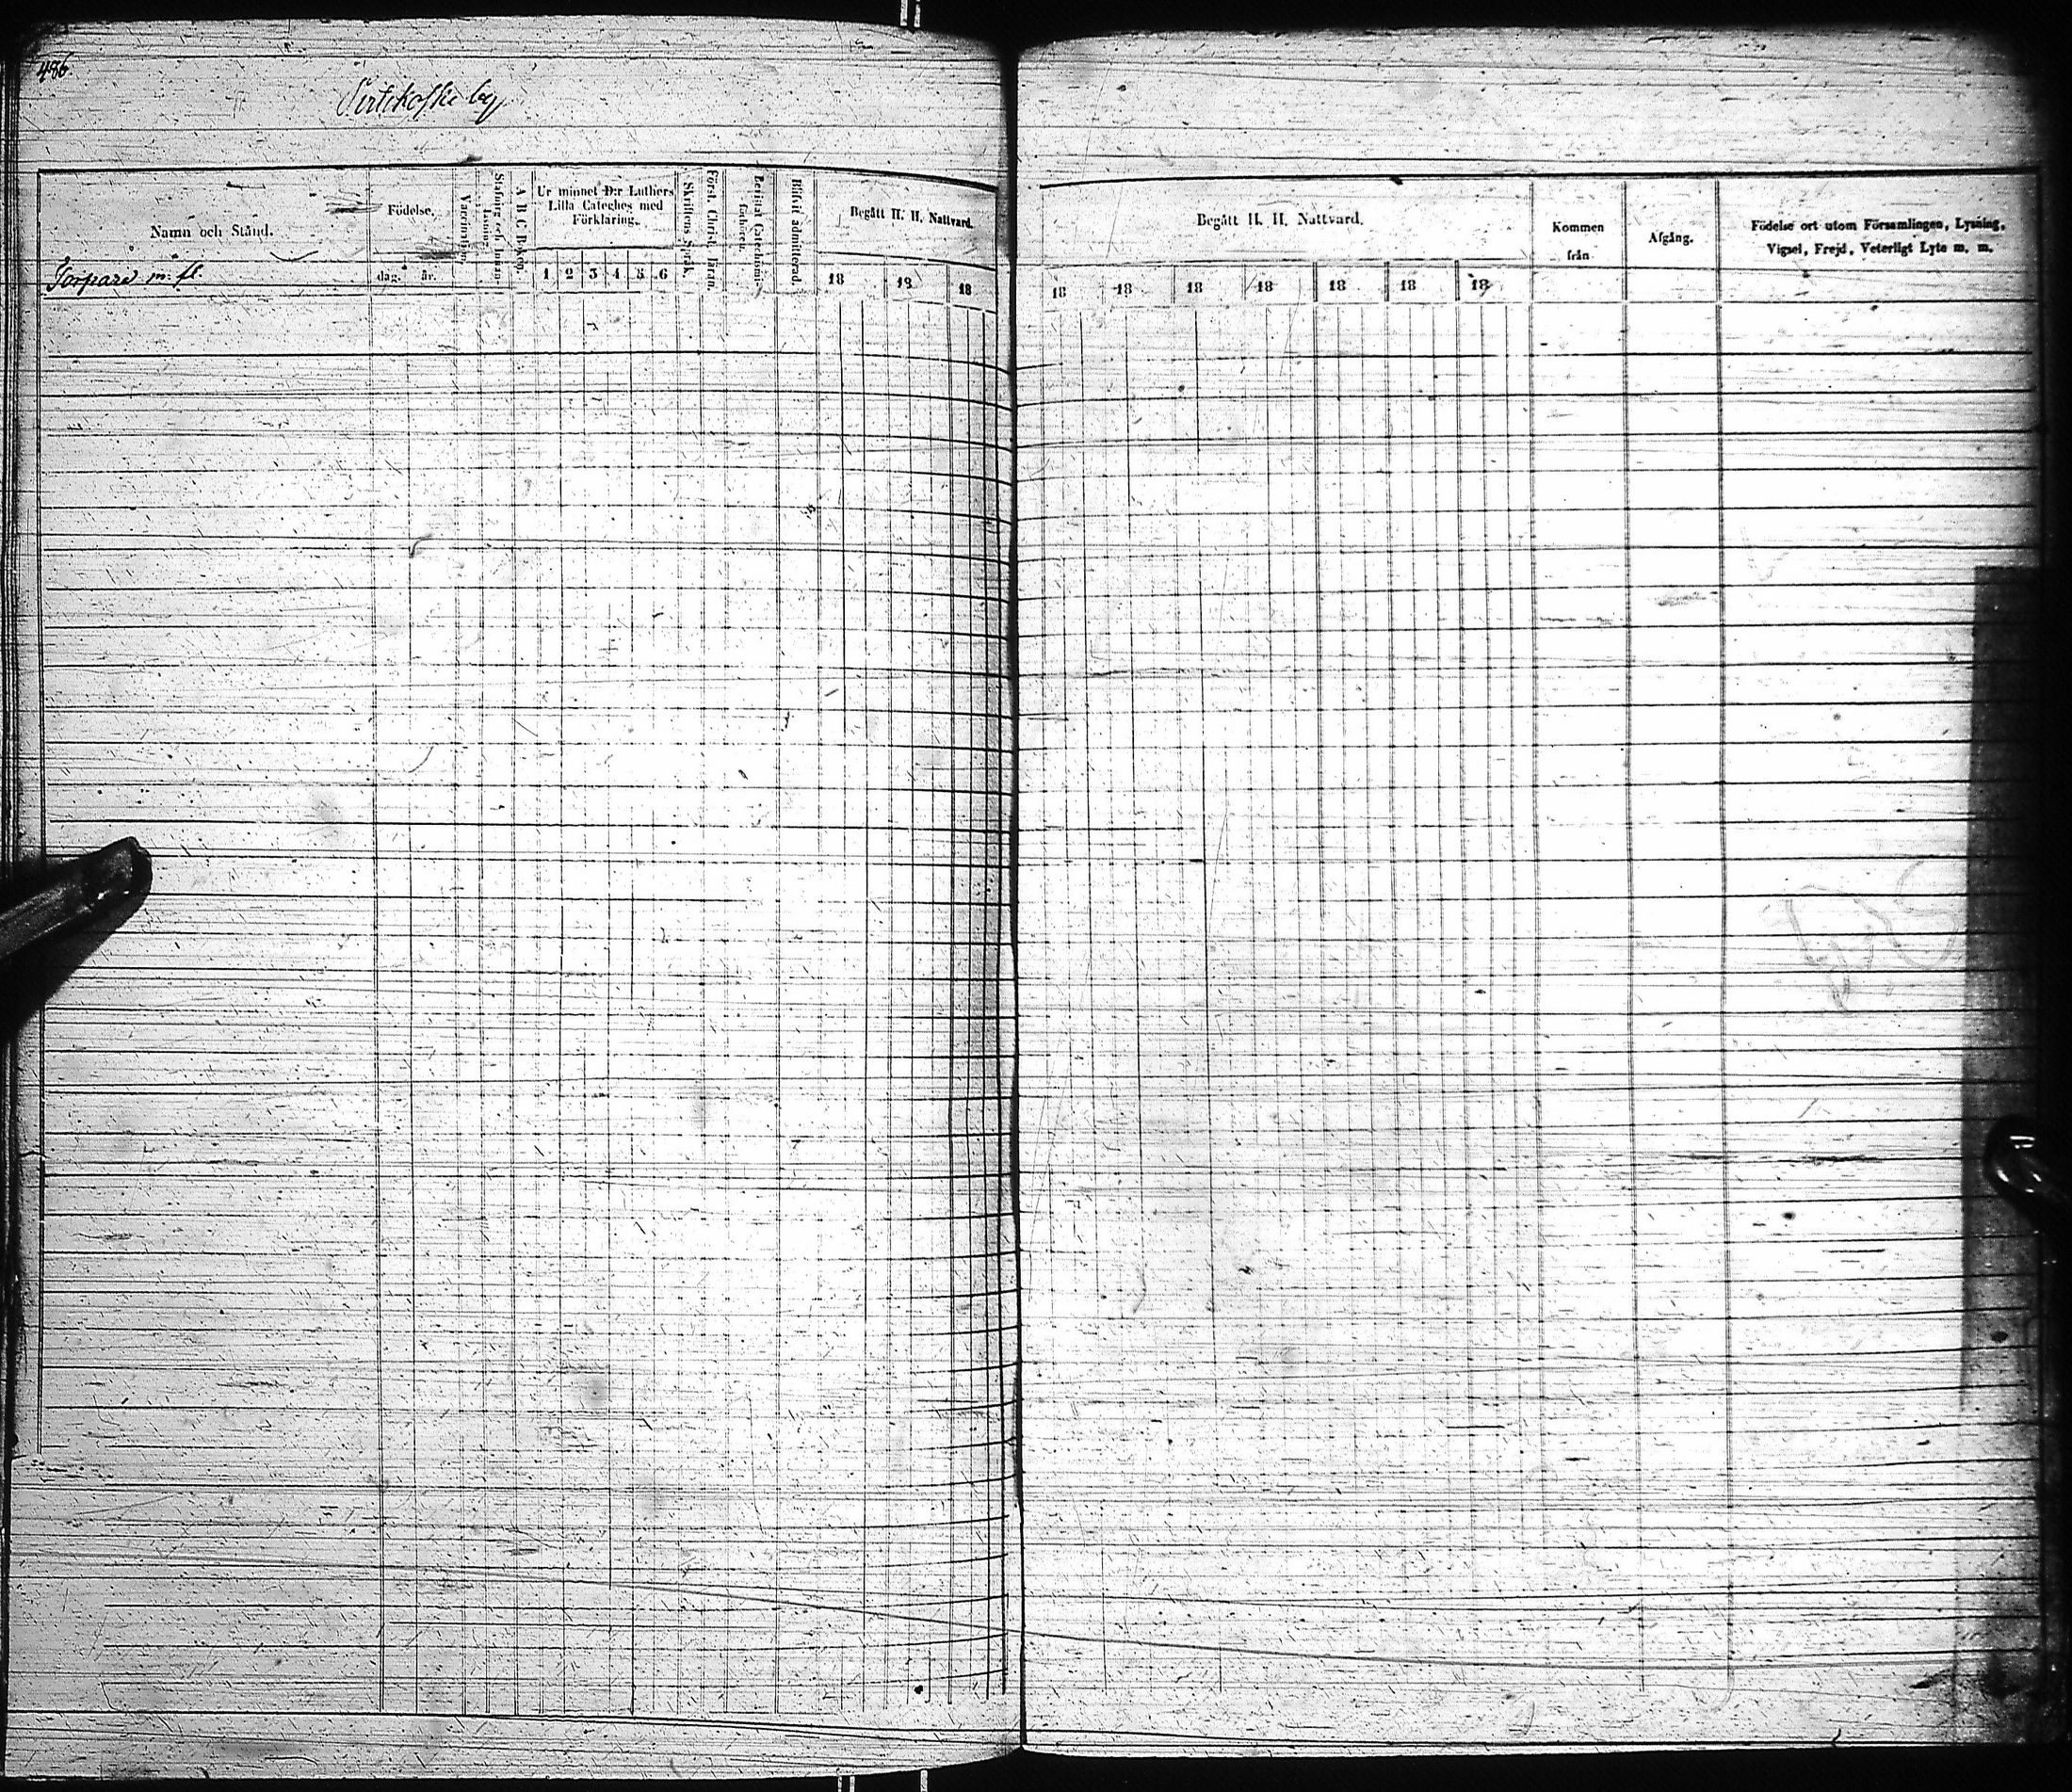 486.
Pirtikoski by
Namn och Stånd.
Födelse.
dag. år.
Vaccination.
Stafning och Innan-läsning.
A B C Boken.
Ur minnet D:r Luthers
Lilla Cateches med
Förklaring.
1 2 3 4 5 6
Skriftens Språk.
Först. Christ. läran.
Blifvit admitterad.
Begått H. H. Nattvard.
18 18 18
Torpare m: fl.
Begått H. H. Nattvard.
18 18 18 18 18 18 18
Kommen
från
Afgång.
Födelse ort utom Församlingen, Lysning,
Vigsel, Frejd, Veterligt Lyte m. m.